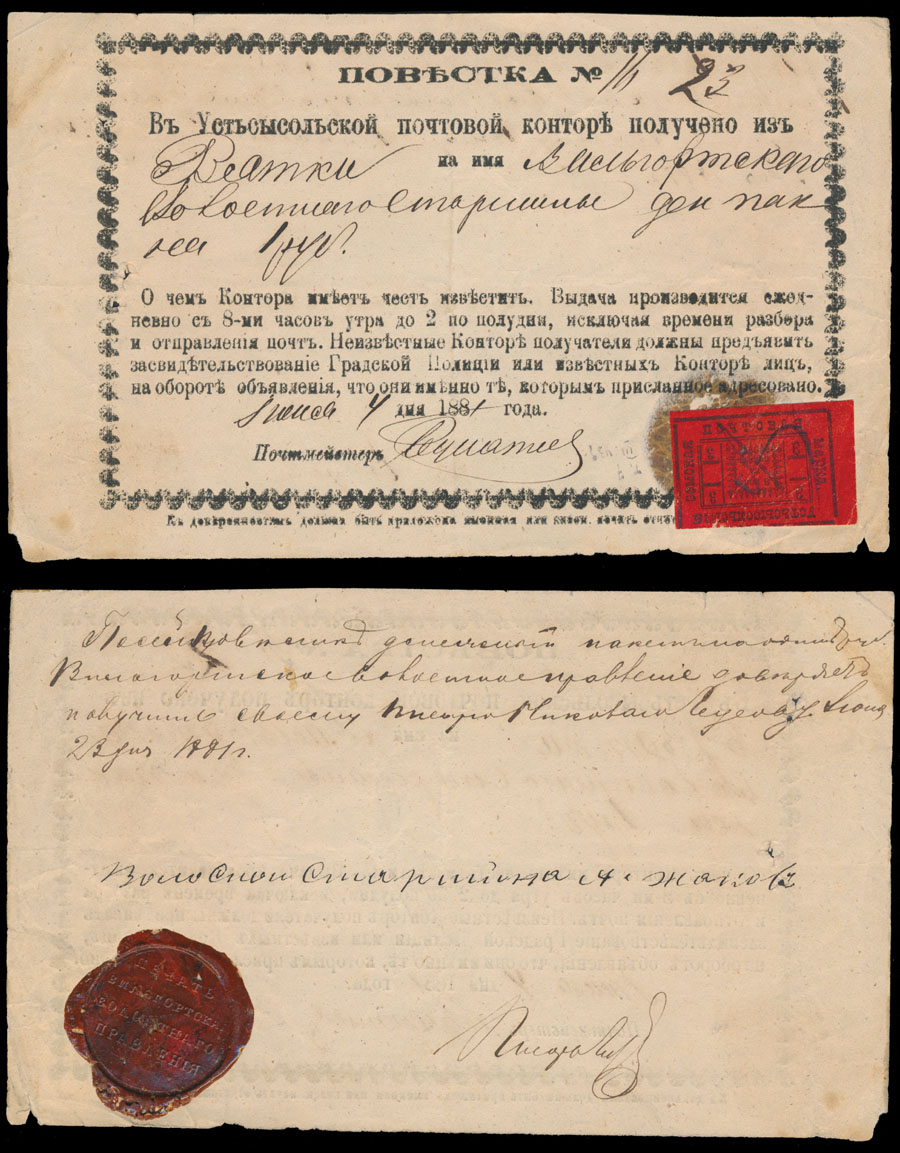 ПОВѢСТКА № 16 23
Въ Устьсысольской почтовой конторѣ получено изъ
Вятки на имя Вильгортскаго
Волостнаго Старшины ден пак
на 1 руб.
О чемъ Контора имѣетъ честь извѣстить. Выдача производится ежед-
невно съ 8-ми часовъ утра до 2 по полудни, исключая времени разбора
и отправленія почтъ. Неизвѣстные Конторѣ получатели должны предъявить
засвидѣтельствованіе Градской Полиціи или извѣстныхъ Конторѣ лицъ,
на оборотѣ объявленія, что они именно тѣ, которымъ присланное адресовано.
Іюня 4 дня 1881 года.
Почтмейстеръ
Къ довѣренностямъ должна быть приложена именная или казен. печать отчет
МАРКА
УСТЬСЫСОЛЬСКОЙ
ЗЕМСКОЙ
денежный пакетъ на одинъ
Вильгортское волостное правленіе довѣряетъ
получить своему Писарю Николаю
23 дня 1881 г.
Волосной Старшина А. Жаковъ
Писарь
ПЕЧАТЬ
ВИЛЬГОРТСКА
ВОЛОСТНАГО
ПРАВЛЕНІЯ